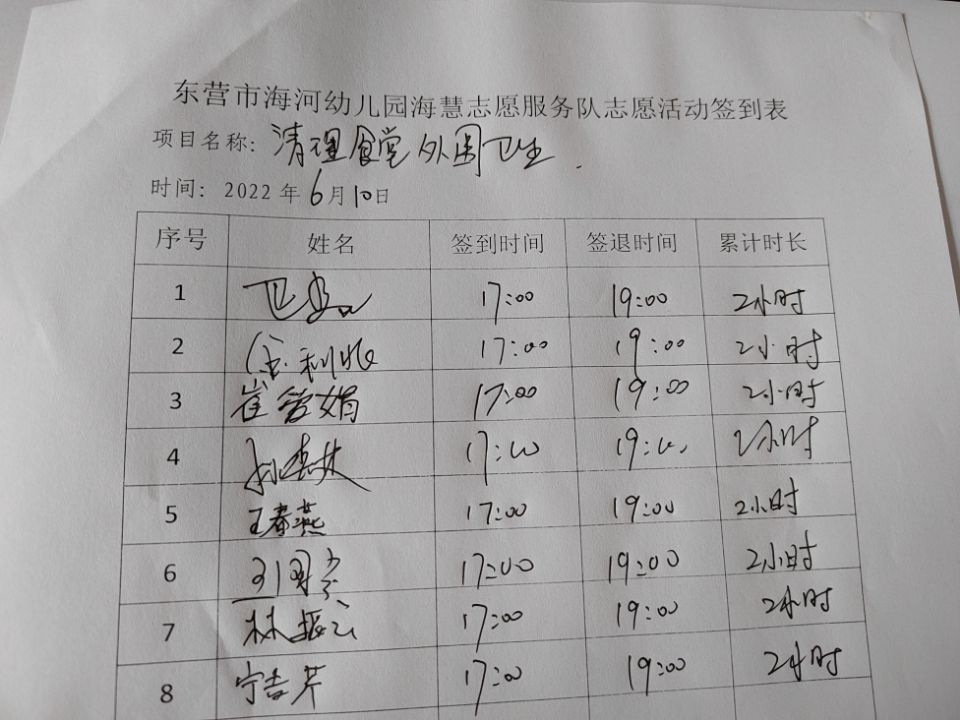 东营市海河幼儿园海慧志愿服务队志愿活动签到表
项目名称：清理食堂外围卫生.
时间：2022年6月10日
序号 姓名 签到时间 签退时间 累计时长
1 17:00 19:00 2小时
2 17:00 19:00 2小时
3 崔 娟 17:00 19:00 2小时
4 17:00 19:00 2小时
5 王春燕 17:00 19:00 2小时
6 17:00 19:00 2小时
7 林振云 17:00 19:00 2小时
8 宁吉芹 17:00 19:00 2小时